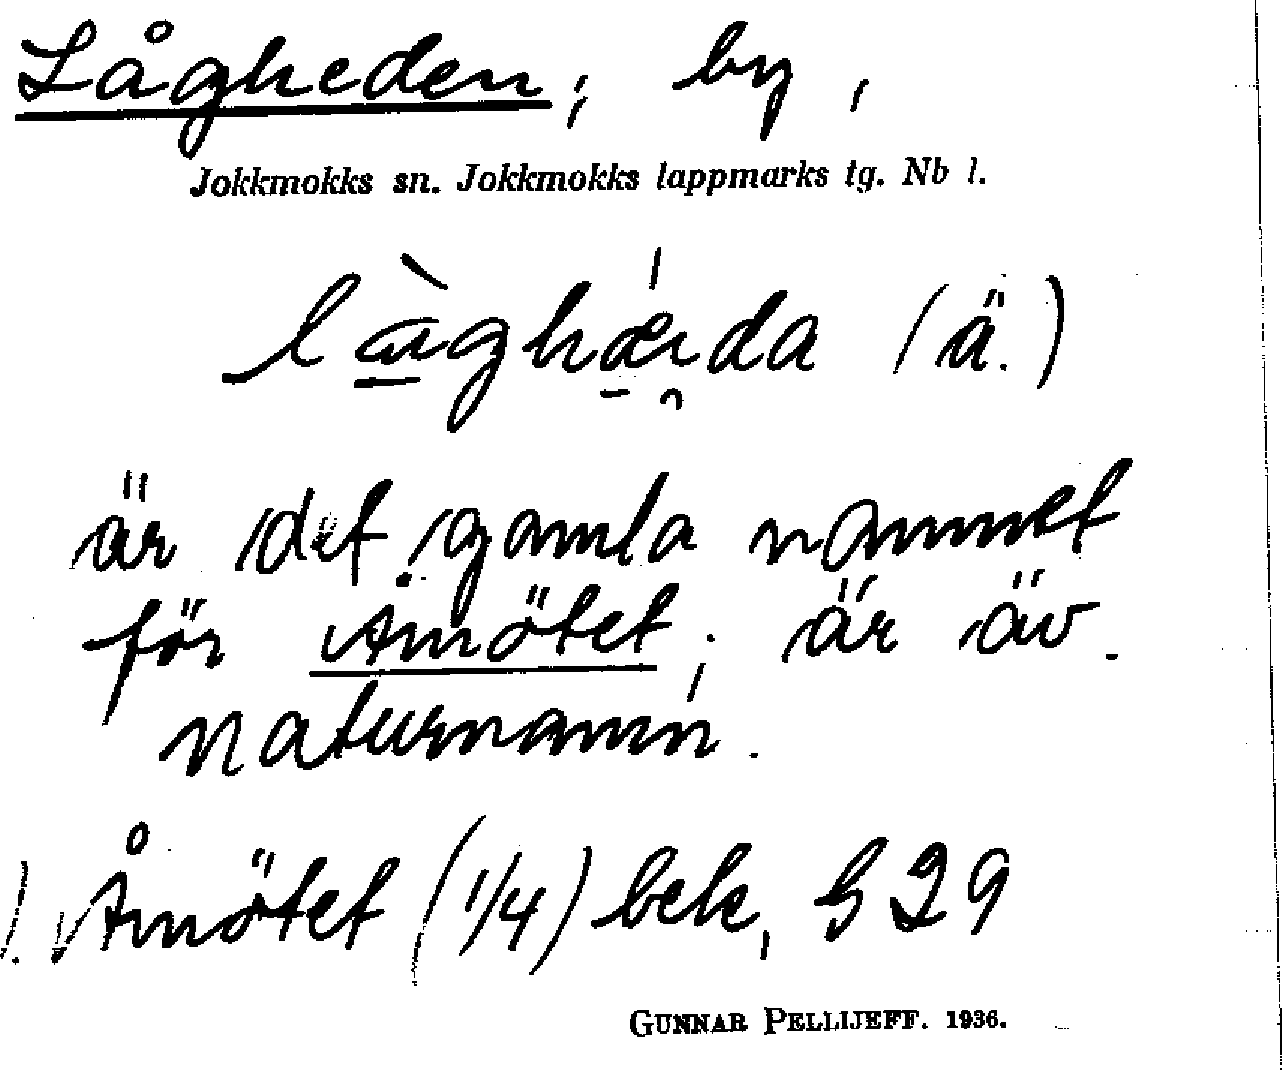 Lågheden, by,
Jokkmokks sn. Jokkmokks lappmarks tg. Nb l.
(ä.)
är det gamla namnet
för Åmötet; är äv.
naturnamn.
1. Åmötet (1/4) bek, 29
GUNNAR PELLIJEFF. 1936.